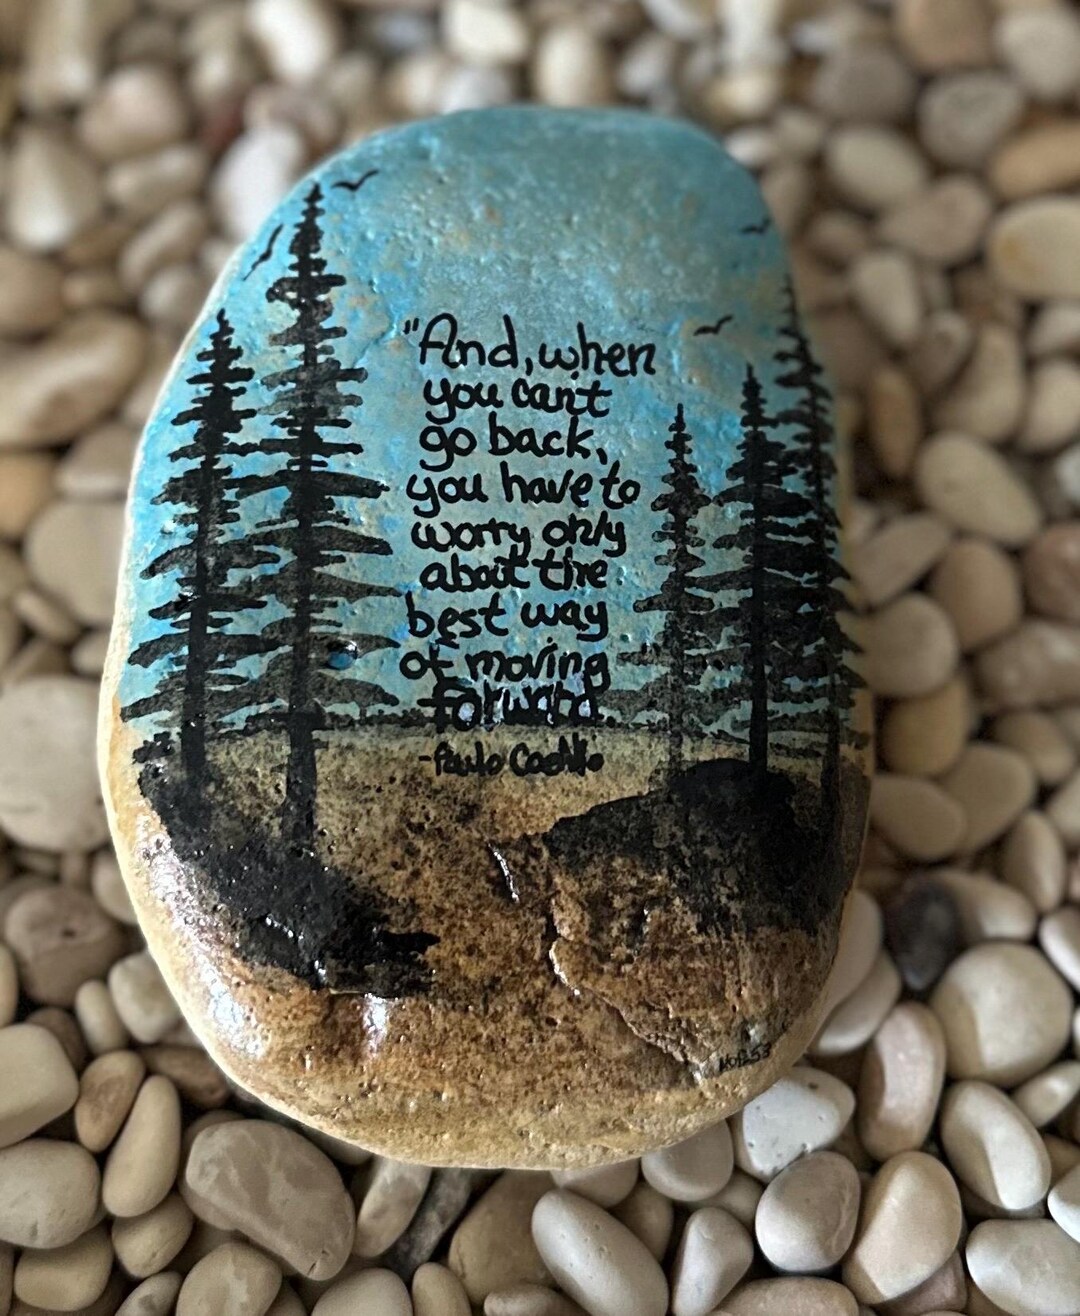 "And, when
you can't
go back,
you have to
worry only
about the
best way
of moving
forward
-Paulo Coehlo